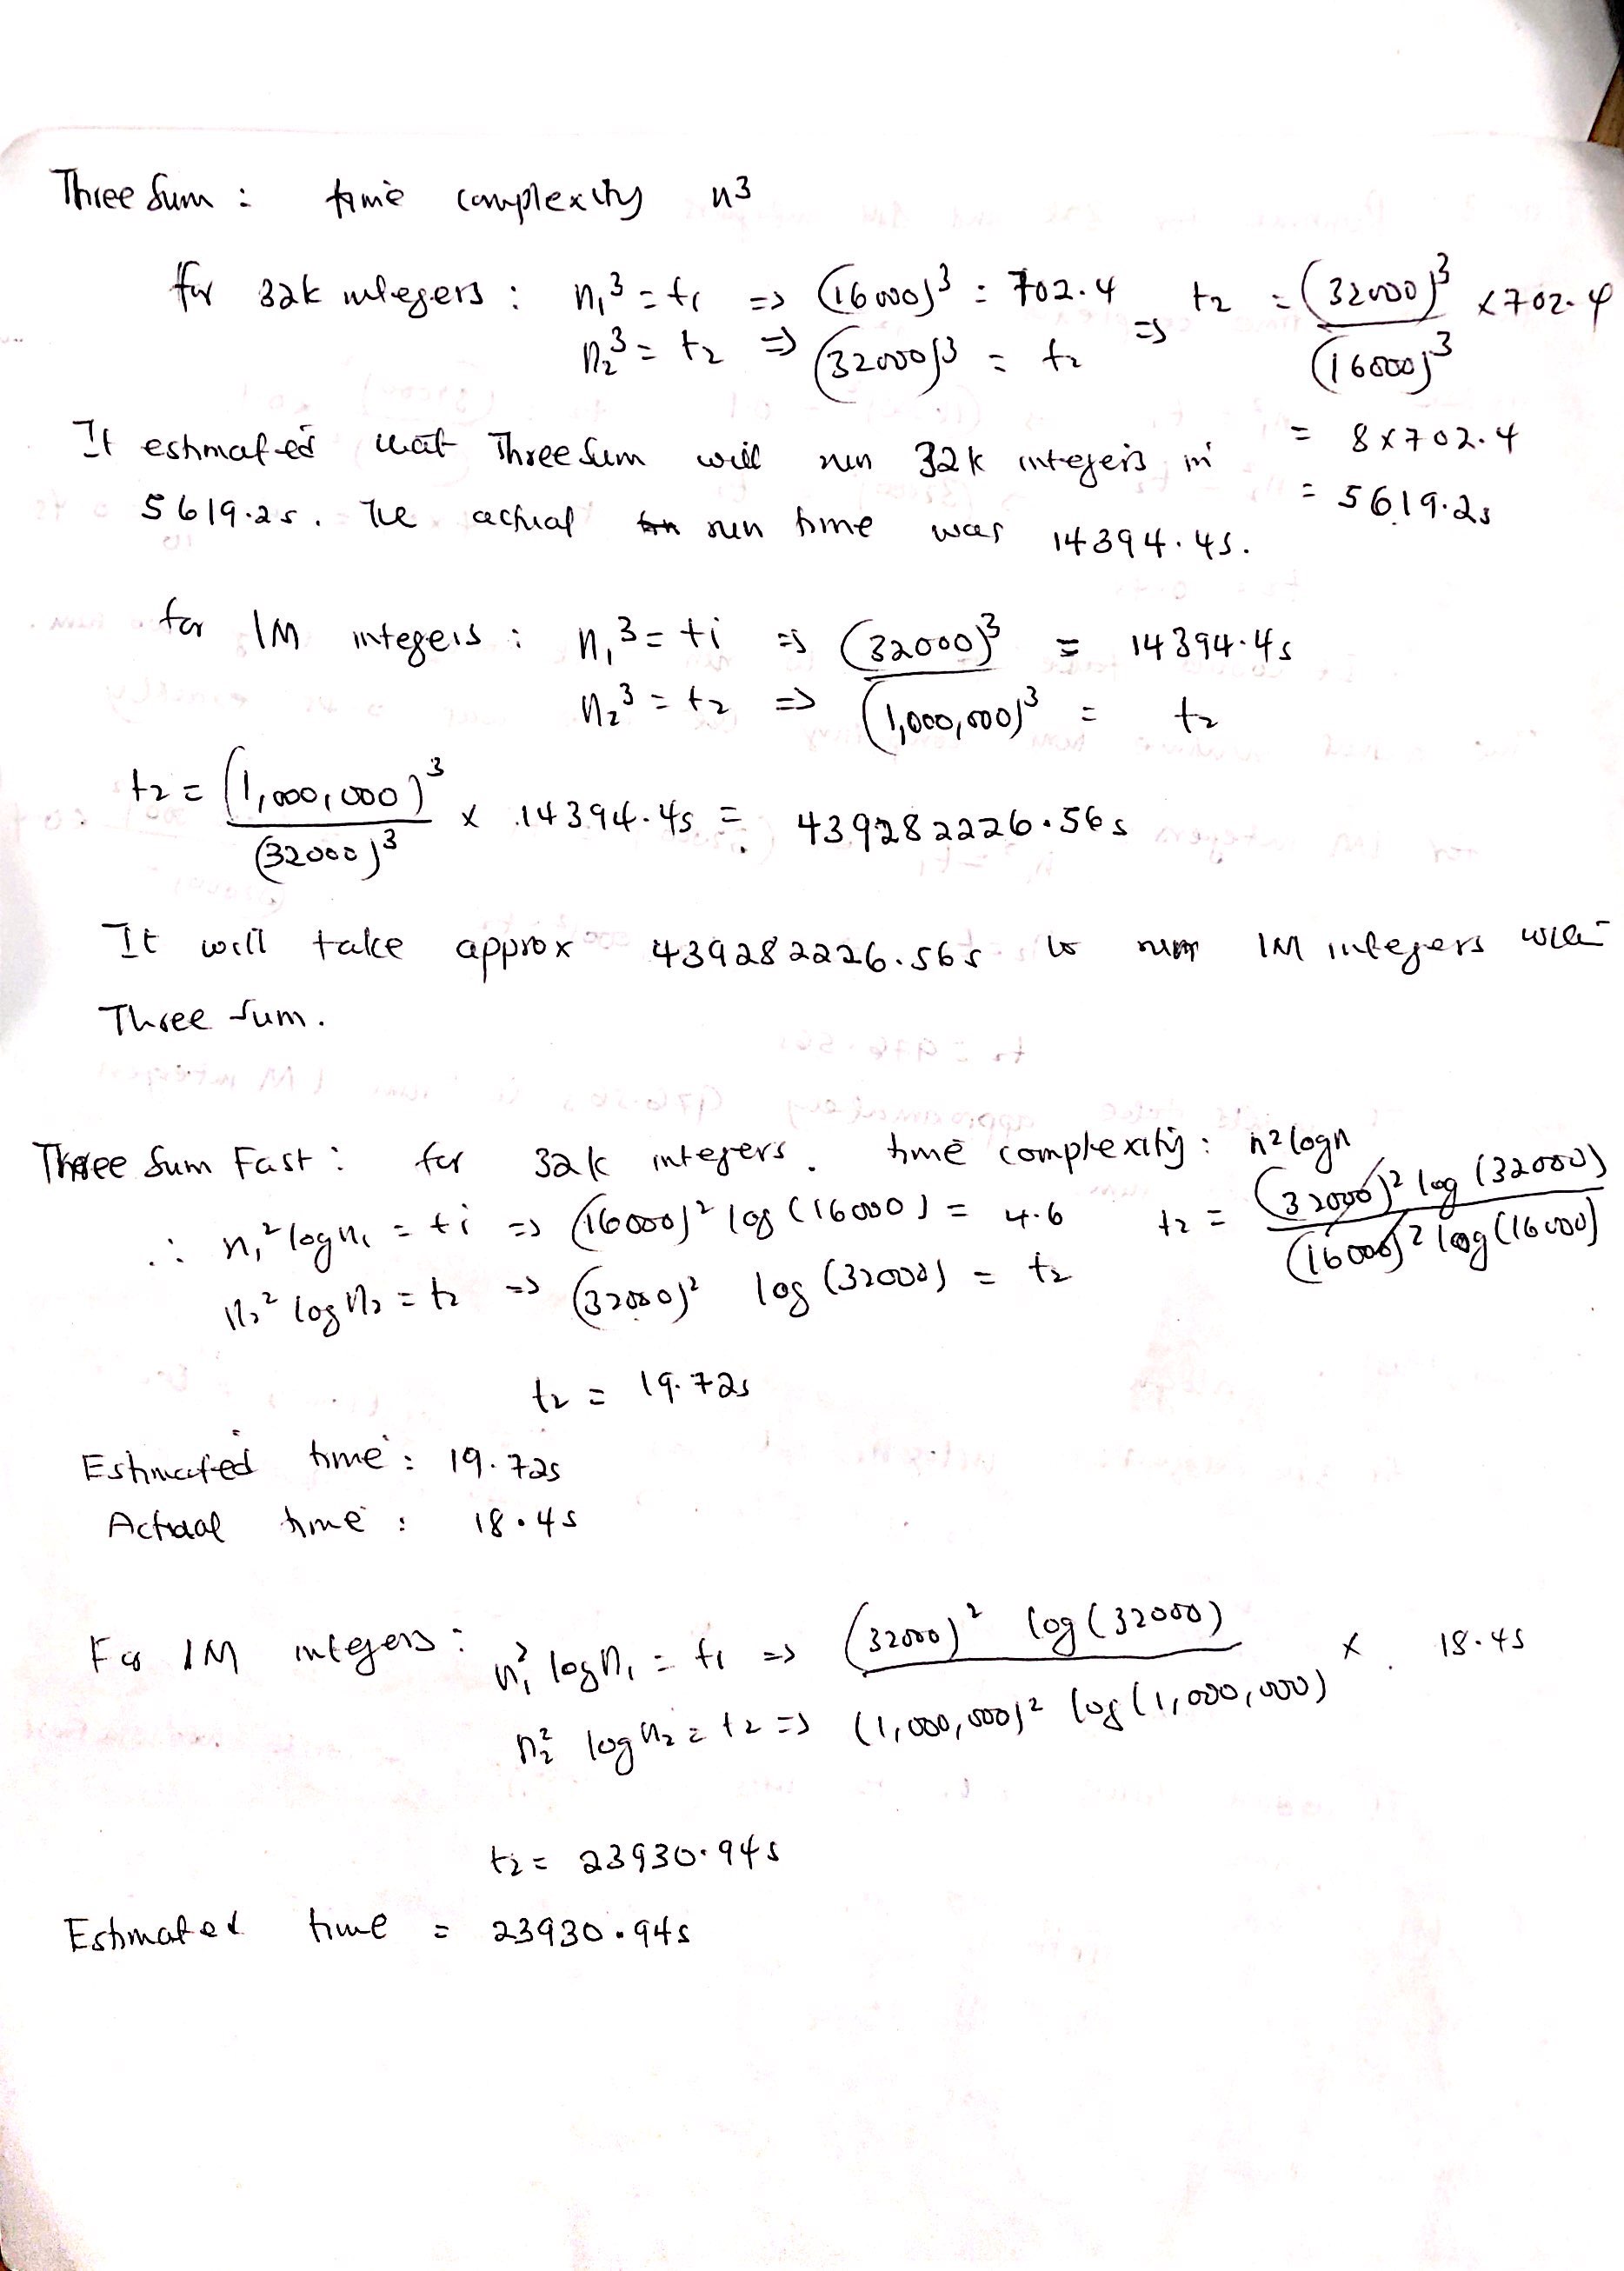 Three Sum : time complexity n³
for 32k integers : n₁³ = t₁ => (16000)³ = 702.4 => t₂ = (32000)³ / (16000)³ × 702.4
n₂³ = t₂ => (32000)³ = t₂
= 8 × 702.4
It estimated that ThreeSum will run 32k integers in
= 5619.2s
5619.2s. The actual run time was 14394.4s.
for 1M integers : n₁³ = t₁ => (32000)³ = 14394.4s
n₂³ = t₂ => (1,000,000)³ = t₂
t₂ = (1,000,000)³ / (32000)³ × 14394.4s = 439282226.56s
It will take approx 439282226.56s to run 1M integers with
Three Sum.
Three Sum Fast : for 32k integers. time complexity : n² log n
∴ n₁² log n₁ = t₁ => (16000)² log (16000) = 4.6 t₂ = (32000)² log (32000) / (16000)² log (16000)
n₂² log n₂ = t₂ => (32000)² log (32000) = t₂
t₂ = 19.72s
Estimated time : 19.72s
Actual time : 18.4s
For 1M integers : n₁² log n₁ = t₁ => (32000)² log (32000) × 18.4s
n₂² log n₂ = t₂ => (1,000,000)² log (1,000,000)
t₂ = 23930.94s
Estimated time = 23930.94s